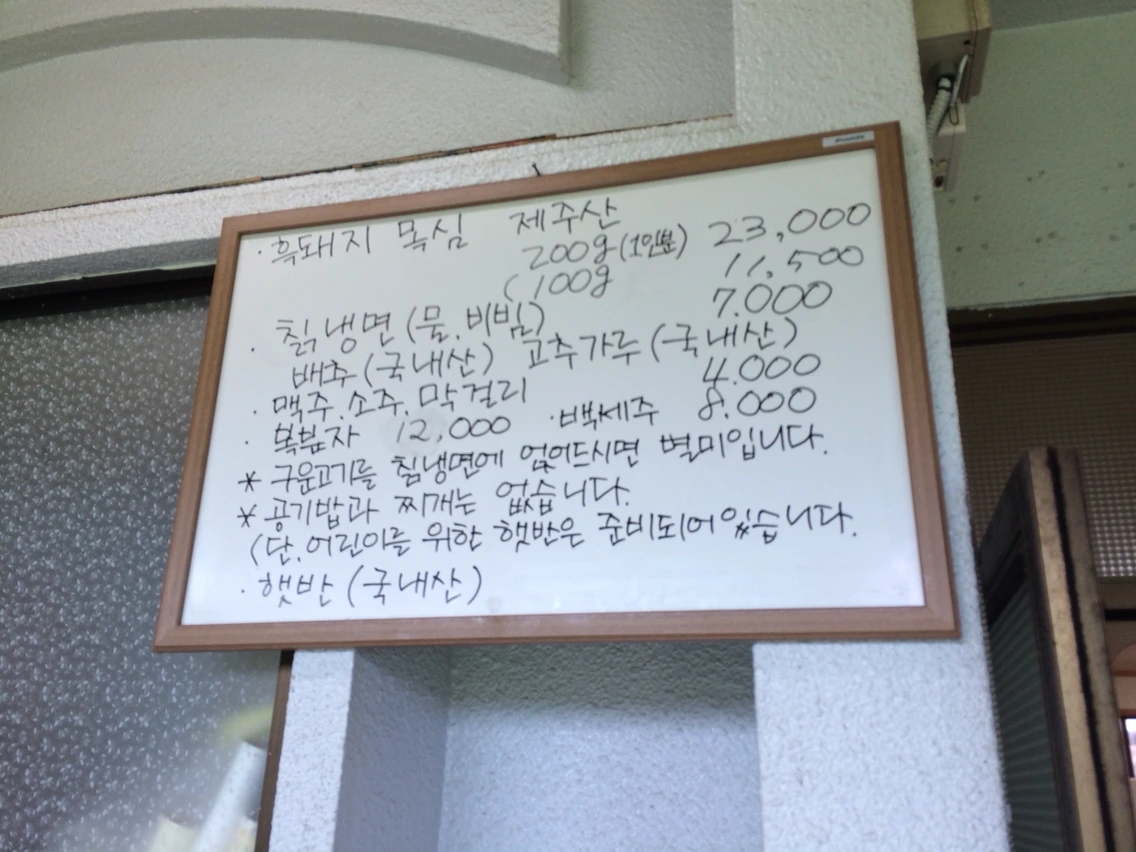 · 흑돼지 목심 제주산
200g (1인분) 23,000
(100g 11,500
· 칡냉면 (물, 비빔) 7.000
배추 (국내산) 고추가루 (국내산)
· 맥주, 소주, 막걸리 4.000
· 복분자 12,000 · 백세주 8.000
* 구운고기를 칡냉면에 얹어드시면 별미입니다.
* 공기밥과 찌개는 없습니다.
(단, 어린이를 위한 햇반은 준비되어있습니다.
· 햇반 (국내산)